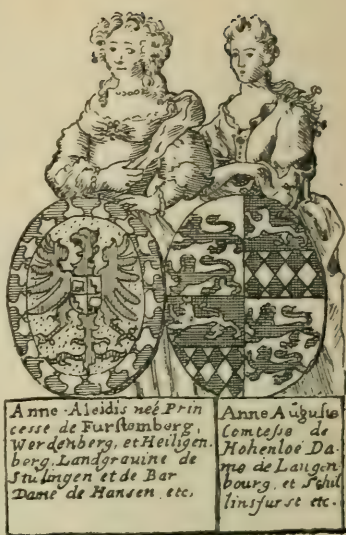 Anne-Aleidis neé Prin
cesse de Furstemberg,
Werdenberg, et Heiligen.
berg, Landgrauine de
Stulingen et de Bar
Dame de Hansen, etc,
Anne Auguste
Comtesse de
Hohenloe Da-
me de Langen
bourg, et Schil
linsfurst etc.